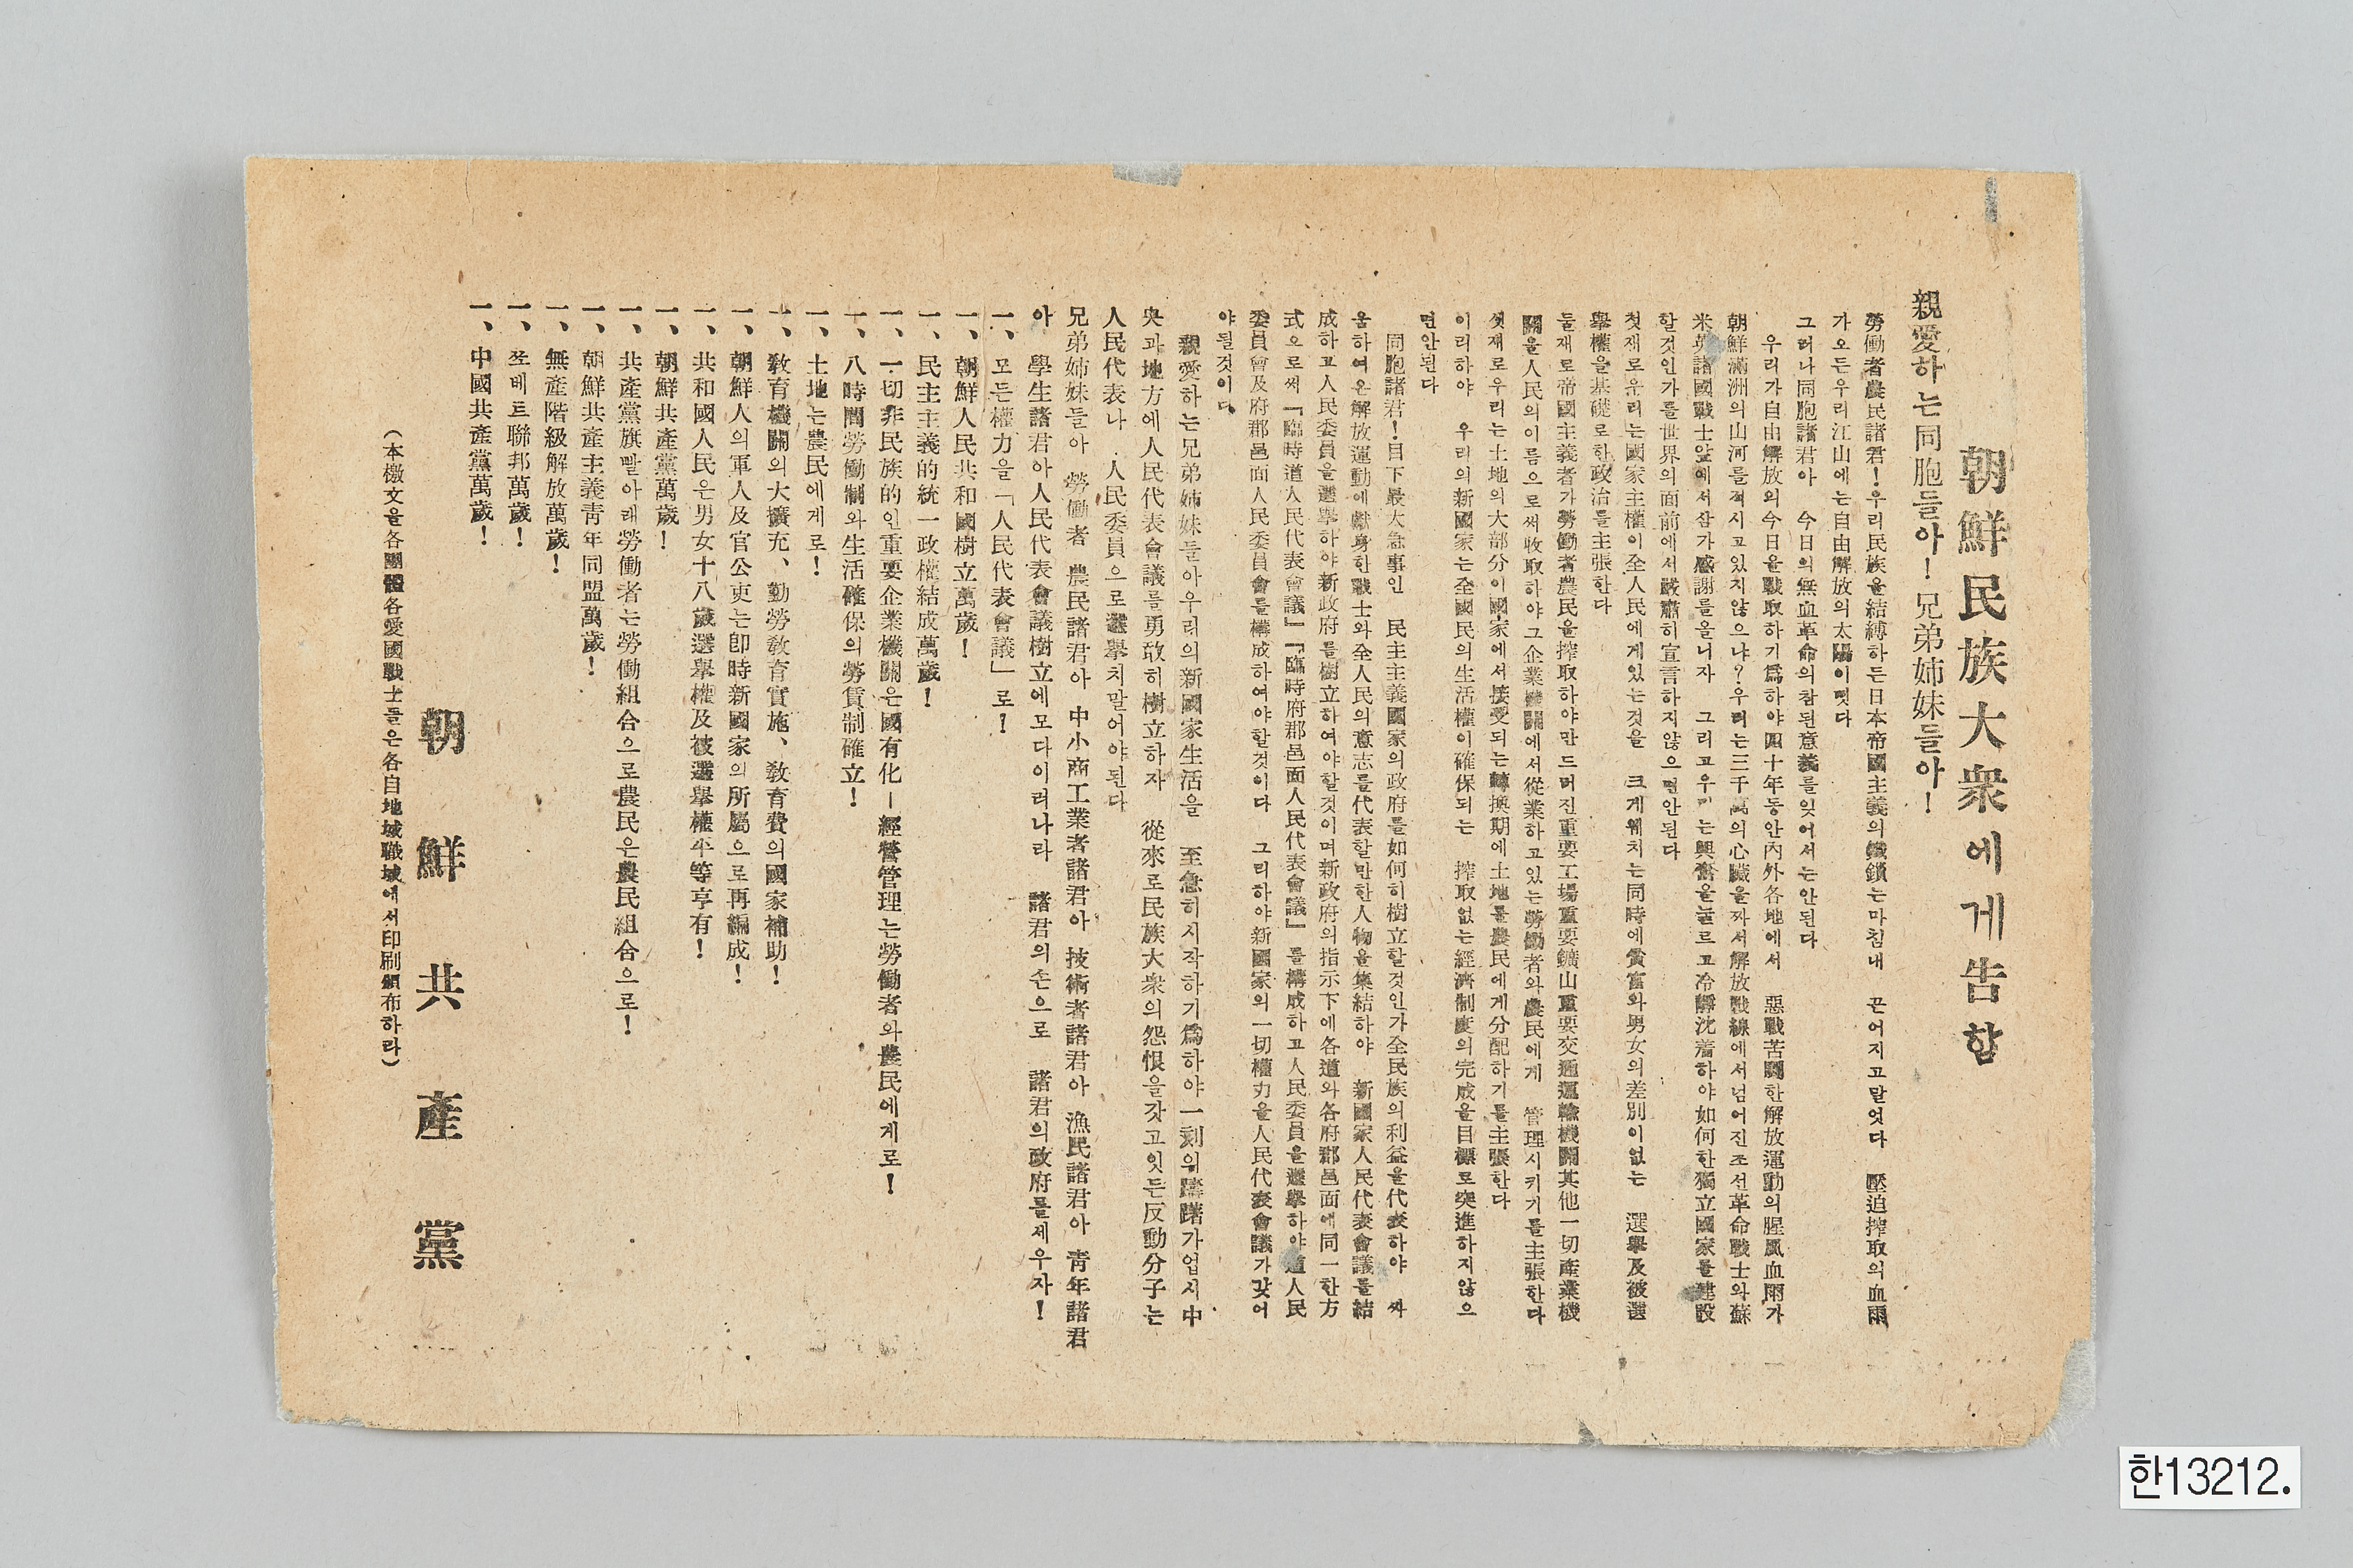 朝鮮民族大衆에게告함
親愛하는同胞들아!兄弟姉妹들아!
勞働者農民諸君!우리民族을結縛하든日本帝國主義의鐵鎖는마침내 끈어지고말엇다 壓迫搾取의血雨
가오든우리江山에는自由解放의太陽이떳다
그러나同胞諸君아 今日의無血革命의참된意義를잊어서는안된다
우리가自由解放의今日을戰取하기爲하야四十年동안內外各地에서 惡戰苦鬪한解放運動의腥風血雨가
朝鮮滿洲의山河를적시고있지않으냐?우리는三千萬의心臟을짜서解放戰線에서넘어진조선革命戰士와蘇
米英諸國戰士앞에서삼가感謝를올니자 그리고우리는興奮을눌르고冷靜沈着하야如何한獨立國家를建設
할것인가를世界의面前에서嚴肅히宣言하지않으면안된다
첫재로우리는國家主權이全人民에게있는것을 크게웨치는同時에貧富와男女의差別이없는 選擧及被選
擧權을基礎로한政治를主張한다
둘재로帝國主義者가勞働者農民을搾取하야만드러진重要工場重要鑛山重要交通運輸機關其他一切產業機
關을人民의이름으로써收取하야그企業機關에서從業하고있는勞働者와農民에게 管理시키기를主張한다
셋재로우리는土地의大部分이國家에서接受되는轉換期에土地를農民에게分配하기를主張한다
이리하야 우리의新國家는全國民의生活權이確保되는 搾取없는經濟制度의完成을目標로突進하지않으
면안된다
同胞諸君!目下最大急事인 民主主義國家의政府를如何히樹立할것인가全民族의利益을代表하야 싸
움하여온解放運動에獻身한戰士와全人民의意志를代表할만한人物을集結하야 新國家人民代表會議를結
成하고人民委員을選擧하야新政府를樹立하여야할것이며新政府의指示下에各道와各府郡邑面에同一한方
式으로써『臨時道人民代表會議』『臨時府郡邑面人民代表會議』를構成하고人民委員을選擧하야道人民
委員會及府郡邑面人民委員會를構成하여야할것이다 그리하야新國家의一切權力을人民代表會議가갖어
야될것이다
親愛하는兄弟姉妹들아우리의新國家生活을 至急히시작하기爲하야一刻의躊躇가업시中
央과地方에人民代表會議를勇敢히樹立하자 從來로民族大衆의怨恨을갓고잇든反動分子는
人民代表나 人民委員으로選擧치말어야된다
兄弟姉妹들아 勞働者 農民諸君아 中小商工業者諸君아 技術者諸君아 漁民諸君아 靑年諸君
아 學生諸君아人民代表會議樹立에모다이러나라 諸君의손으로 諸君의政府를세우자!
一、모든權力을「人民代表會議」로!
一、朝鮮人民共和國樹立萬歲!
一、民主主義的統一政權結成萬歲!
一、一切非民族的인重要企業機關은國有化—經營管理는勞働者와農民에게로!
一、八時間勞働制와生活確保의勞賃制確立!
一、土地는農民에게로!
一、敎育機關의大擴充、勤勞敎育實施、敎育費의國家補助!
一、朝鮮人의軍人及官公吏는卽時新國家의所屬으로再編成!
一、共和國人民은男女十八歲選擧權及被選擧權平等享有!
一、朝鮮共產黨萬歲!
一、共產黨旗빨아래勞働者는勞働組合으로農民은農民組合으로!
一、朝鮮共產主義靑年同盟萬歲!
一、無產階級解放萬歲!
一、쏘베트聯邦萬歲!
一、中國共產黨萬歲!
朝鮮共產黨
(本檄文을各團體各愛國戰士들은各自地域職域에서印刷頒布하라)
한13212.